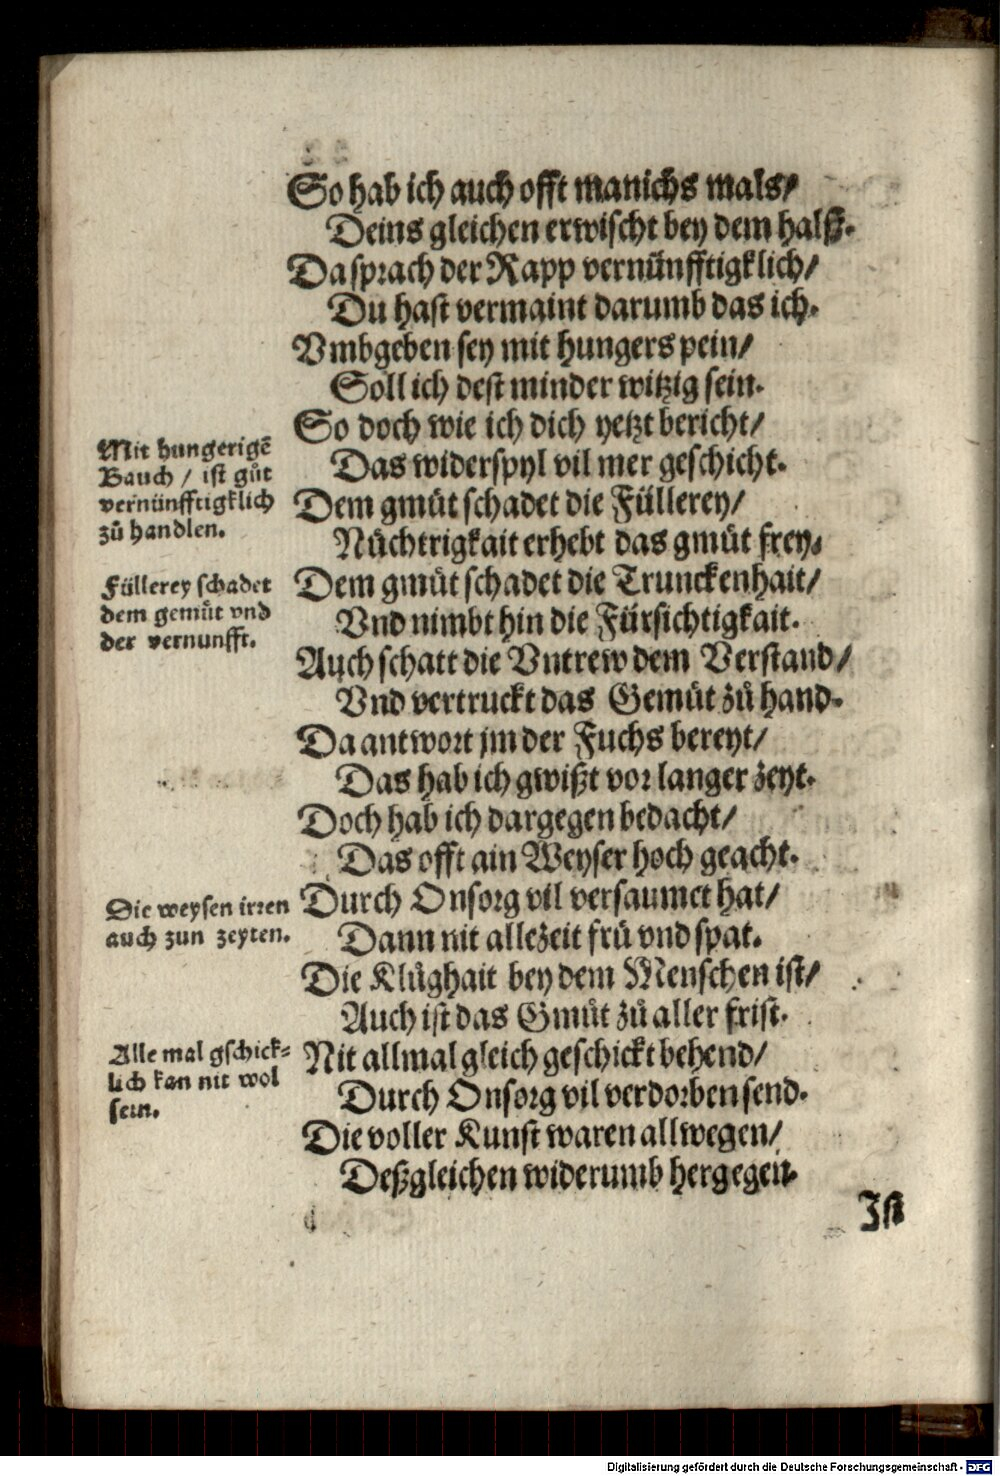 So hab ich auch offt manichs mals/
Deins gleichen erwischt bey dem halß.
Da sprach der Rapp vernünfftigklich/
Du hast vermaint darumb das ich.
Vmbgeben sey mit hungers pein/
Soll ich dest minder witzig sein.
So doch wie ich dich yetzt bericht/
Das widerspyl vil mer geschicht.
Mit hungerigẽ
Bauch / ist gůt
vernünfftigklich
zů handlen.
Dem gmüt schadet die Füllerey/
Nüchtrigkait erhebt das gmüt frey.
Füllerey schadet
dem gemüt vnd
der vernunfft.
Dem gmüt schadet die Trunckenhait/
Vnd nimbt hin die Fürsichtigkait.
Auch schatt die Vntrew dem Verstand/
Vnd vertruckt das Gemüt zů hand.
Da antwort jm der Fuchs bereyt/
Das hab ich gwißt vor langer zeyt.
Doch hab ich dargegen bedacht/
Das offt ain Weyser hoch geacht.
Die weysen irren
auch zun zeyten.
Durch Onsorg vil versaumet hat/
Dann nit allezeit frü vnd spat.
Die Klůghait bey dem Menschen ist/
Auch ist das Gmüt zů aller frist.
Alle mal gschick=
lich kan nit wol
sein.
Nit allmal gleich geschickt behend/
Durch Onsorg vil verdorben send.
Die voller Kunst waren allwegen/
Deßgleichen widerumb hergegen.
Ist
Digitalisierung gefördert durch die Deutsche Forschungsgemeinschaft - DFG